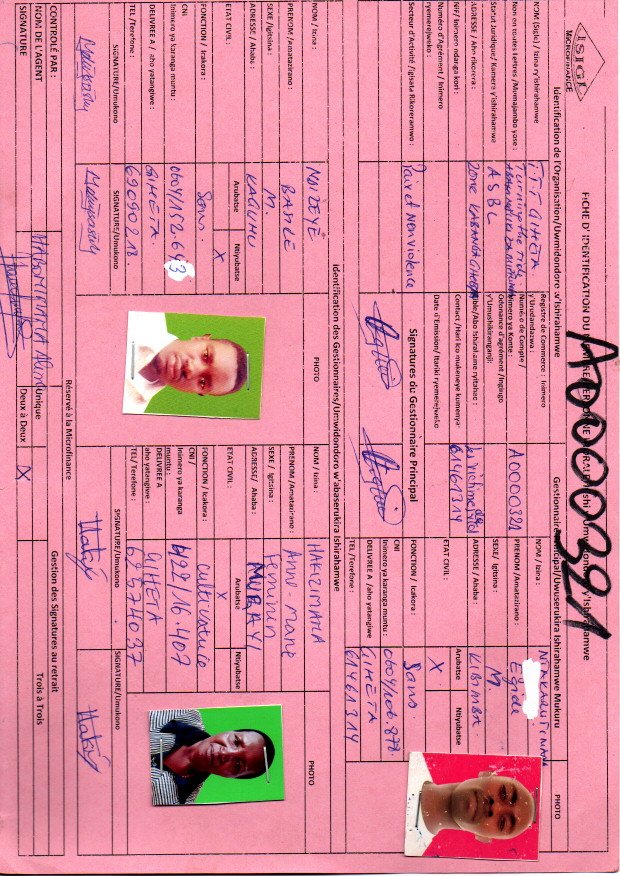 ISIGI
MICROFINANCE
FICHE D'IDENTIFICATION DU
A0000321
Identification de l'Organisation/Umwidondoro w'Ishirahamwe
NOM (Sigle) / Izina ry'ishirahamwe
T.T.T GIHETA
Nom en toutes lettres /Mumajambo yose :
Turning the Tide
Statut Juridique/ Kamere y'ishirahamwe
ASBL
ADRESSE / Aho rikorera :
ZONE KABANGA GIHETA
NIF/ Inimero ndanga kori :
Numéro d'Agrément / Inimero ryemerejweko :
Secteur d'Activité /Igisata Rikoreramwo :
Paix et Non violence
Registre de Commerce : Inimero y'Urudandazwa
Numéro de Compte / Inimero ya Konte :
A0000321
Odonance d'agrément /Ingingo y'umushikiranganji:
Contact /Hari ico mukeneye kumenya
61461314
Date d'Emission/ Itariki ryemerejweko
Signatures du Gestionnaire Principal
Gestionnaire Principal/Uwuserukira Ishirahamwe Mukuru
NOM / Izina :
PRENOM /Amatazirano :
Egide
SEXE/ Igitsina :
M
ADRESSE / Ababa :
KIBIMBA
ETAT CIVIL :
Arubatse
Ntiyubatse
X
FONCTION / Ikakora :
Sans
CNI
Inimero ya karanga muntu :
DELIVREE A /aho yatangiwe
GIHETA
TEL /Terefone :
61461314
PHOTO
Identification des Gestionnaires/Umwidondoro w'abaserukira Ishirahamwe
NOM / Izina :
NDIZEYE
PRENOM /Amatazirano :
BASILE
SEXE /Igitsina :
M.
ADRESSE/ Ababa :
KAGUHU
ETAT CIVIL :
Arubatse
Ntiyubatse
X
FONCTION / Ikakora :
Sans.
CNI
Inimero ya karanga muntu :
0604/152.643
DELIVREE A / aho yatangiwe :
GIHETA
TEL /Terefone :
69090218.
SIGNATURE/Umukono
SIGNATURE/Umukono
PHOTO
NOM / Izina :
HAKIZIMANA
PRENOM /Amatazirano :
Anne-Marie
SEXE / Igitsina :
Feminin
ADRESSE/ Ababa :
MUBAYI
ETAT CIVIL :
X
FONCTION / Ikakora :
cultivatrice
CNI /
Inimero ya karanga muntu :
422/16.407
DELIVREE A
aho yatangiwe :
GIHETA
TEL/ Terefone :
62574037
SIGNATURE/Umukono
SIGNATURE/Umukono
PHOTO
Réservé à la Microfinance
CONTROLÉ PAR :
NOM DE L'AGENT
SIGNATURE
Gestion des Signatures au retrait
Unique
Deux à Deux
X
Trois à Trois